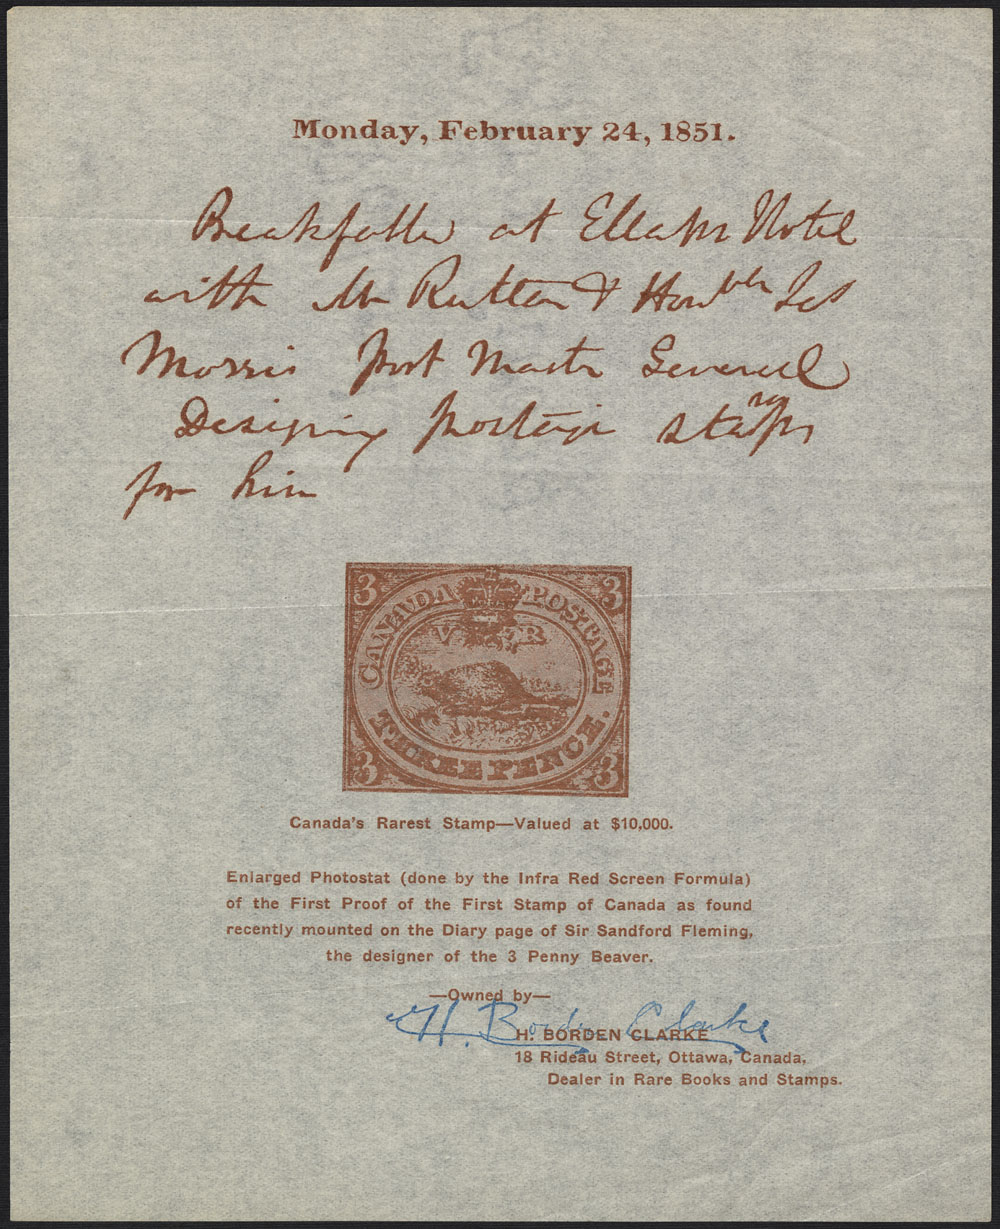 Monday, February 24, 1851.
Breakfasted at Ellahs Hotel
with Mr Rutten & Honble Jas
Morris post Master General
Designing postage stamps
for him
3 3
CANADA POSTAGE
V R
THREE PENCE.
3 3
Canada's Rarest Stamp—Valued at $10,000.
Enlarged Photostat (done by the Infra Red Screen Formula)
of the First Proof of the First Stamp of Canada as found
recently mounted on the Diary page of Sir Sandford Fleming,
the designer of the 3 Penny Beaver.
—Owned by—
H. Borden Clarke
H. BORDEN CLARKE
18 Rideau Street, Ottawa, Canada.
Dealer in Rare Books and Stamps.